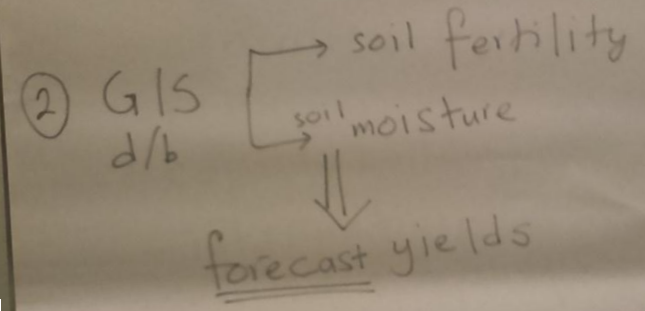 ② GIS
d/b
soil fertility
soil moisture
forecast yields